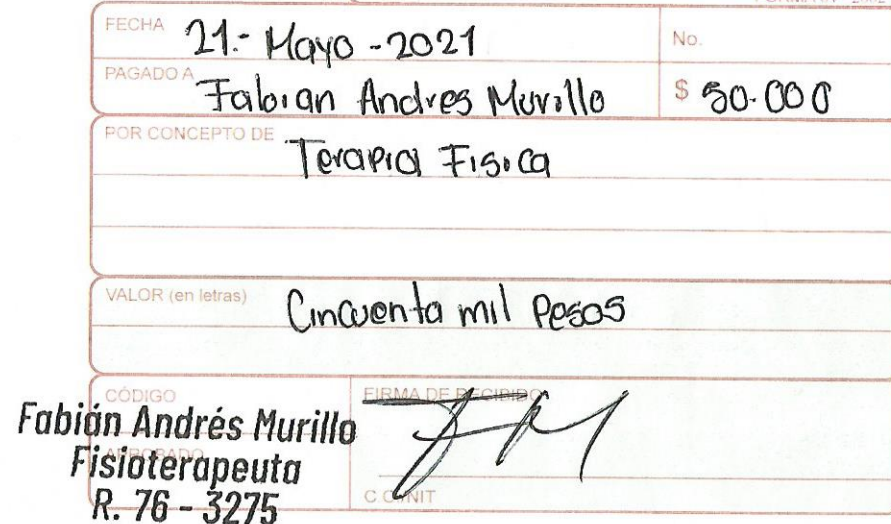 FECHA 21.- Mayo - 2021 No.
PAGADO A Fabian Andres Murillo $ 50.000
POR CONCEPTO DE Terapia Fisica
VALOR (en letras) Cincuenta mil Pesos
CÓDIGO FIRMA DE RECIBIDO
Fabián Andrés Murillo
APROBADO
Fisioterapeuta
R. 76 - 3275 C.C./NIT